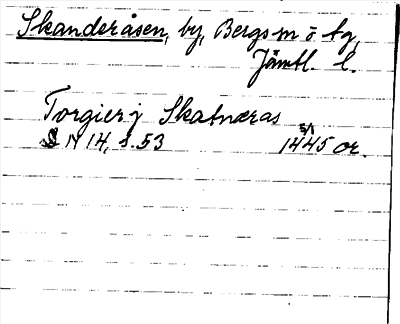 Skanderåsen, by, Bergs sn o tg,
Jämtl. l.
Torgier j Skatnæras
SN 14, s. 53 5/1 1445 or.